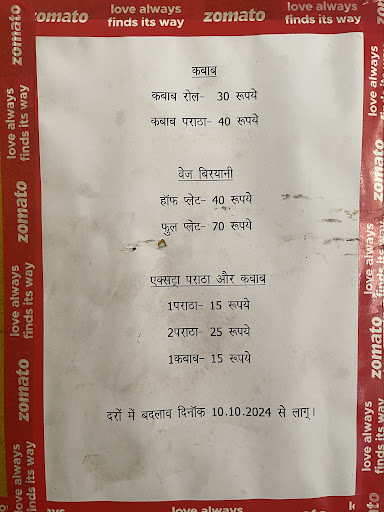 zomato
love always
finds its way
zomato
love always
finds its way
love always
finds its way
zomato
love always
finds its way
zomato
love always
finds its way
zomato
love always
finds its way
zomato
love always
finds its way
zomato
love always
finds its way
कबाब
कबाब रोल- 30 रूपये
कबाब पराठा- 40 रूपये
वेज बिरयानी
हॉफ प्लेट- 40 रूपये
फुल प्लेट- 70 रूपये
एक्सट्रा पराठा और कबाब
1पराठा- 15 रूपये
2पराठा- 25 रूपये
1कबाब- 15 रूपये
दरों में बदलाव दिनॉक 10.10.2024 से लागू।
love always